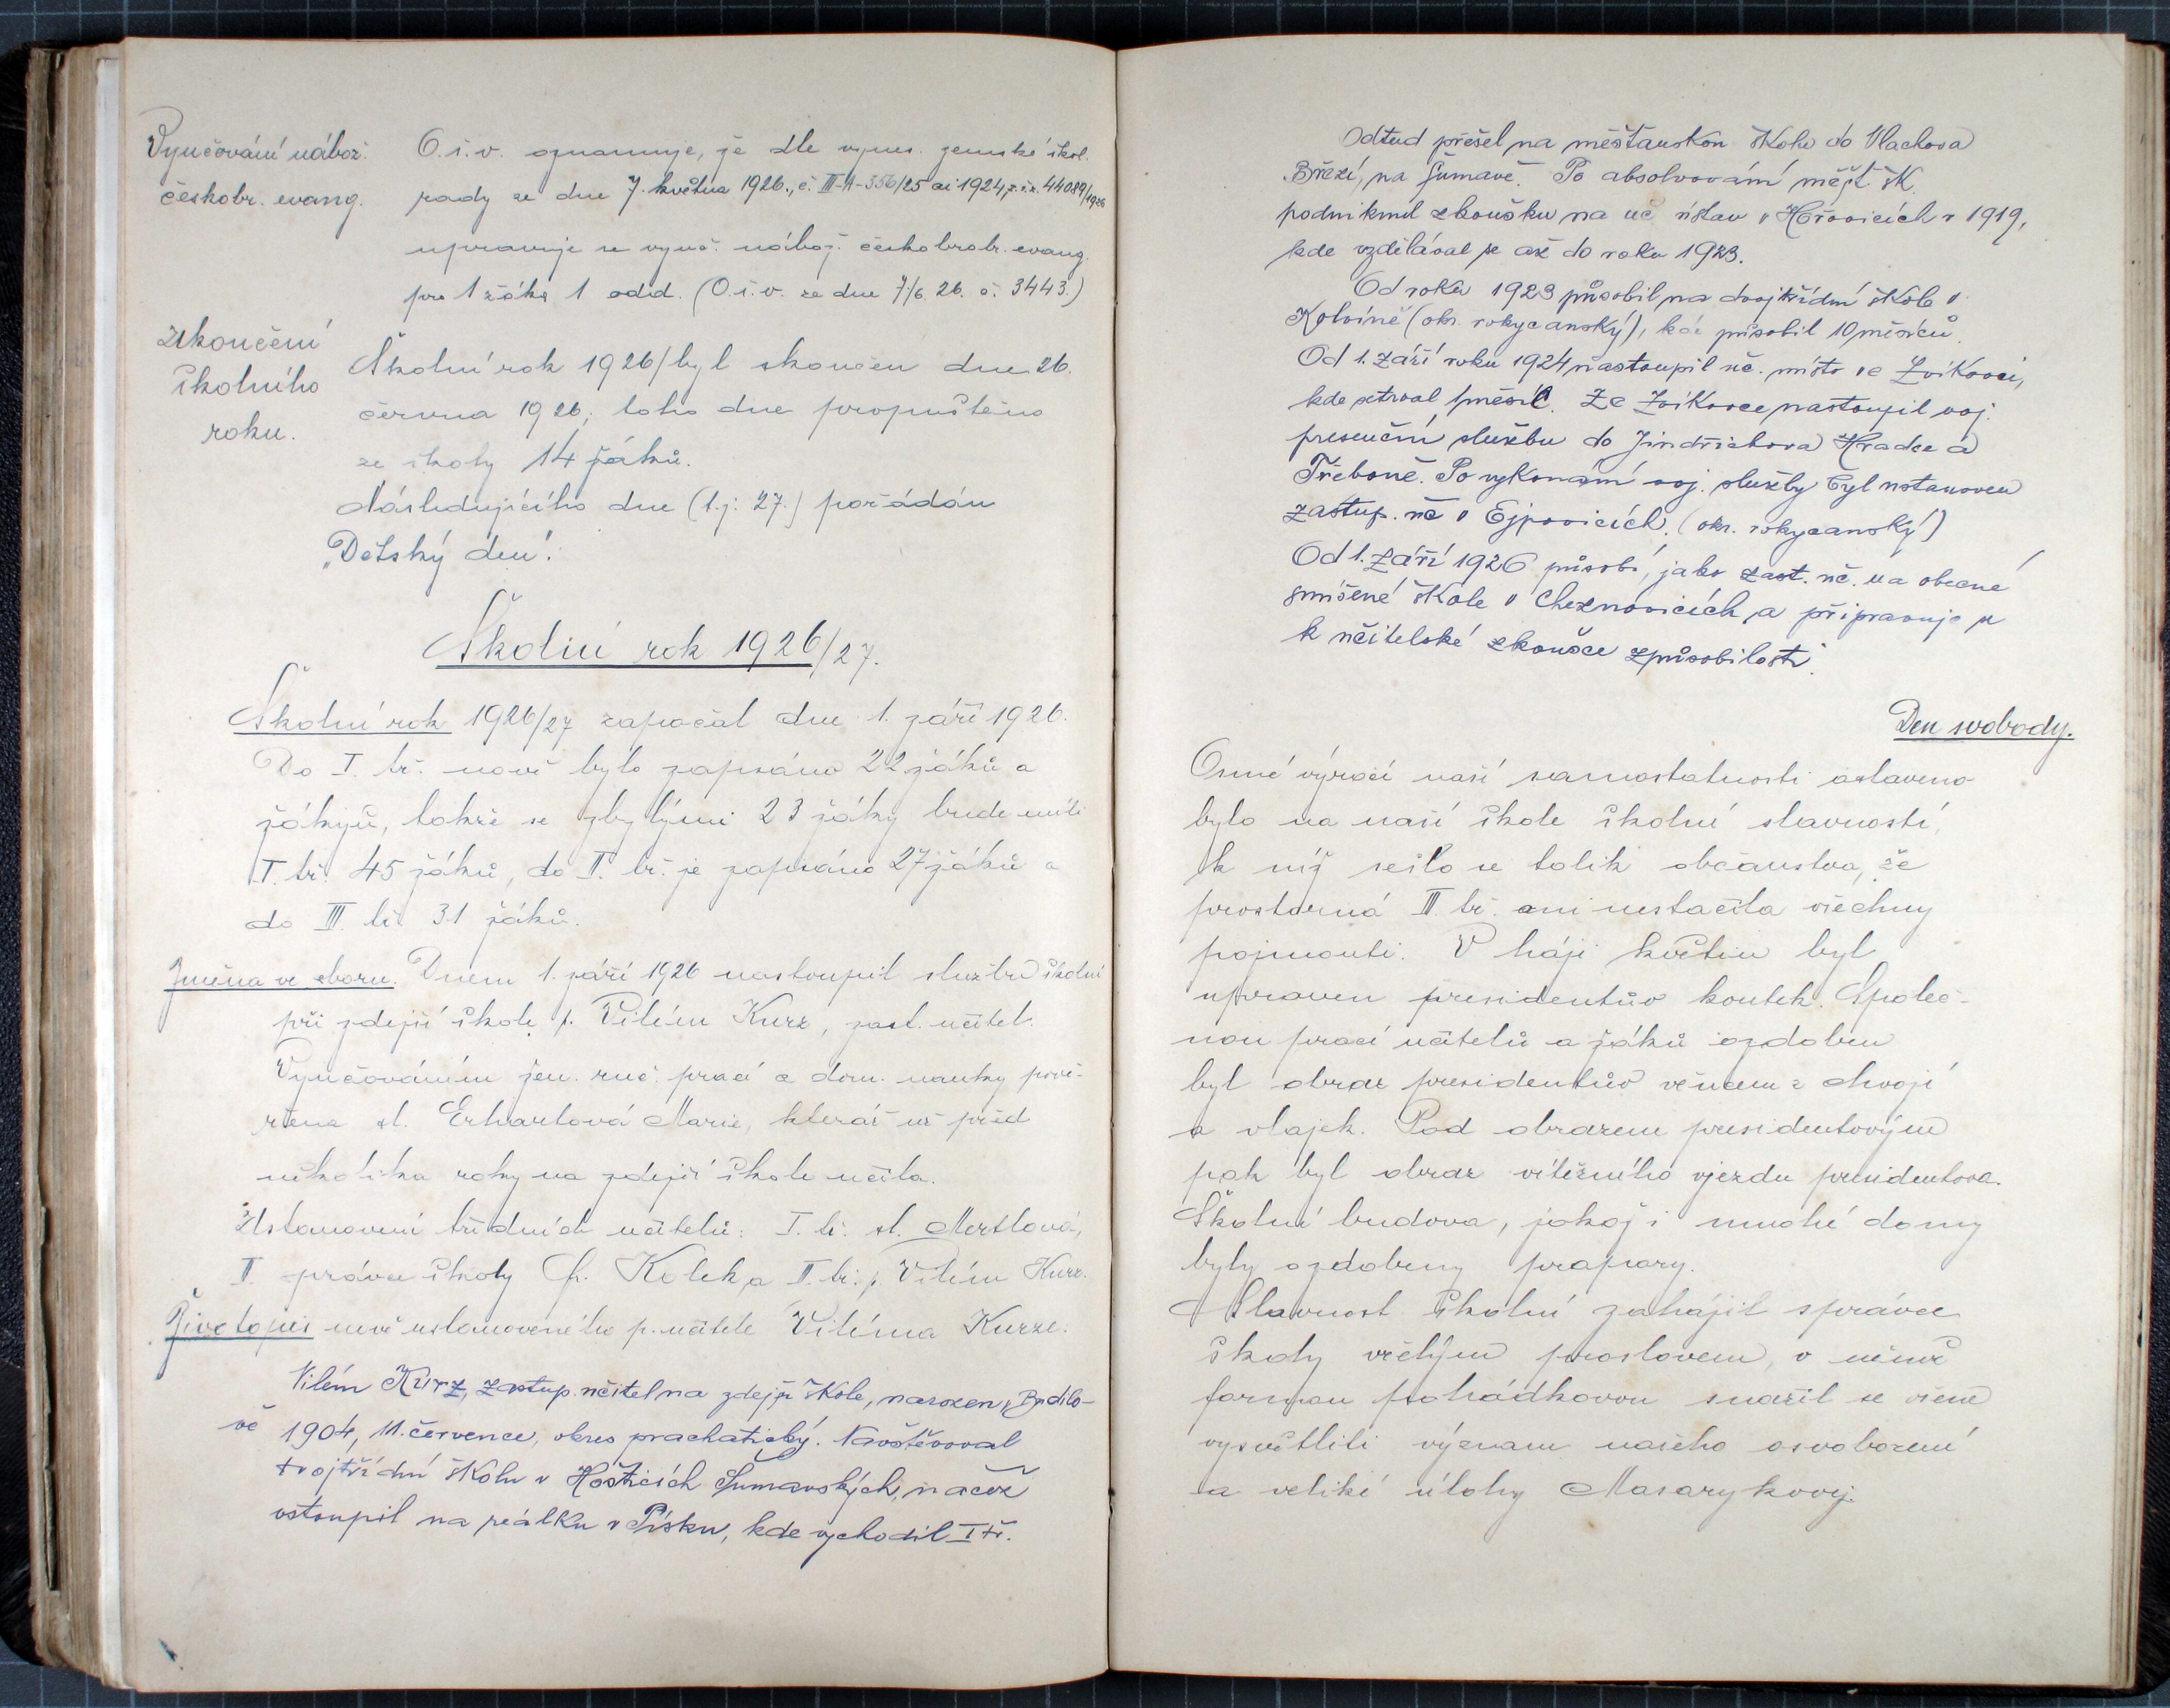 Vyučování nábož.
českobr. evang.
O. š. v. oznamuje, že dle vynes. zemské škol.
rady ze dne 7. května 1926., č. III-A-356/25 ai 1924, z. š. r. 44089/1926
upravuje se vyuč. nábož. českobratr. evang.
pro 1 žáka 1 odd. (O. š. v. ze dne 7/6. 26. č. 3443.)
Ukončení
školního
roku.
Školní rok 1926/ byl skončen dne 26.
června 1926; toho dne propuštěno
ze školy 14 žáků.
Následujícího dne (t. j. 27.) pořádán
„Dětský den".
Školní rok 1926/27.
Školní rok 1926/27 započal dne 1. září 1926.
Do I. tř. nově bylo zapsáno 22 žáků a
žákyň, takže se zbylými 23 žáky bude míti
I. tř. 45 žáků, do II. tř. je zapsáno 27 žáků a
do III. tř. 31 žáků.
Změna ve sboru. Dnem 1. září 1926 nastoupil službu školní
při zdejší škole p. Vilém Kurz, zast. učitel.
Vyučováním žen. ruč. prací a dom. nauky pově-
řena sl. Erhartová Marie, kteráž už před
několika roky na zdejší škole učila.
Ustanovení třídních učitelů: I. tř. sl. Mertlová,
II. správce školy Fr. Kolek a II. tř. p. Vilém Kurz.
Životopis nově ustanoveného p. učitele Viléma Kurze.
Vilém Kurz, zastup. učitel na zdejší škole, narozen v Budilo-
vě 1904, 11. července, okres prachatický. Navštěvoval
trojtřídní školu v Hošticích Šumavských, načež
vstoupil na reálku v Písku, kde vychodil I tř.
Odtud přešel na měšťanskou školu do Vlachova
Březí, na Šumavě. Po absolvování měšť. šk.
podniknul zkoušku na uč. ústav v Hořovicích r 1919,
kde vzdělával se až do roku 1923.
Od roku 1923 působil na dvojtřídní škole v
Kolvíně (okr. rokycanský), kde působil 10 měsíců.
Od 1. září roku 1924 nastoupil uč. místo ve Zvíkovci,
kde setrval 1 měsíc. Ze Zvíkovce nastoupil voj.
presenční službu do Jindřichova Hradce a
Třeboně. Po vykonání voj. služby byl ustanoven
zastup. uč v Ejpovicích. (okr. rokycanský)
Od 1. září 1926 působí, jako zast. uč. na obecné
smíšené škole v Cheznovicích a připravuje se
k učitelské zkoušce způsobilosti.
Den svobody.
Osmé výročí naší samostatnosti oslaveno
bylo na naší škole školní slavností,
k níž sešlo se tolik občanstva, že
prostorná II. tř. ani nestačila všechny
pojmouti. V háji květin byl
upraven presidentův koutek. Společ-
nou prací učitelů a žáků ozdoben
byl obraz presidentův věncem z chvojí
a vlajek. Pod obrazem presidentovým
pak byl obraz vítězného vjezdu presidentova.
Školní budova, jakož i mnohé domy
byly ozdobeny prapory.
Slavnost školní zahájil správce
školy vřelým proslovem, v němž
formou pohádkovou snažil se všem
vysvětliti význam našeho osvobození
a veliké úlohy Masarykovy.